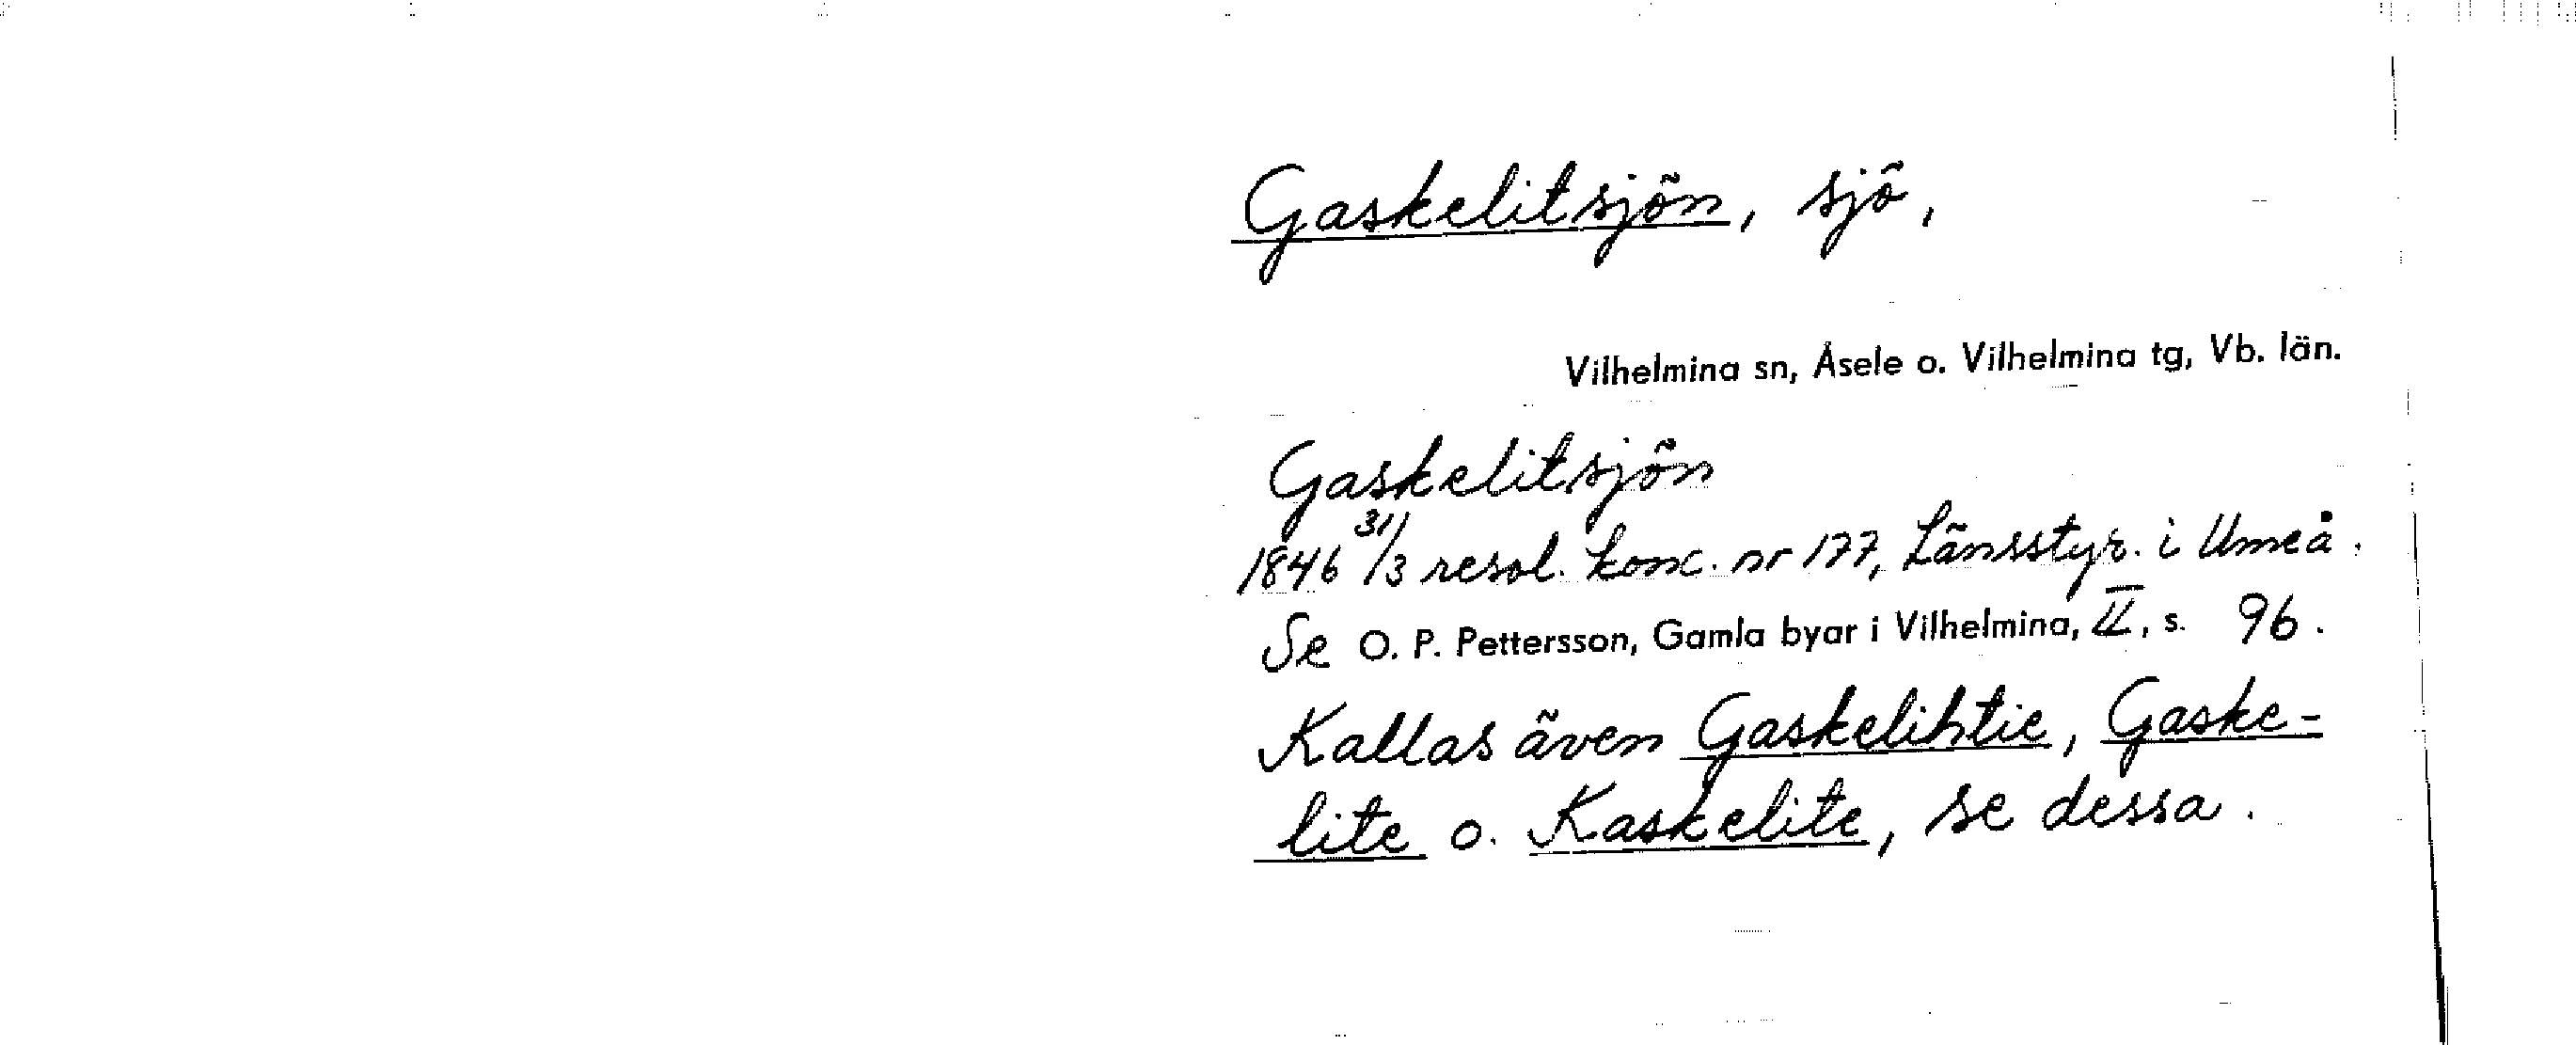 Gaskelitsjön, sjö,
Vilhelmina sn, Åsele o. Vilhelmina tg, Vb. län.
Gaskelitsjön
1846 31/3 resol. konc. nr 177, Länsstyr. i Umeå.
Se O. P. Pettersson, Gamla byar i Vilhelmina, II, s. 96.
Kallas även Gaskelihtie, Gaske-
lite o. Kaskelite, se dessa.